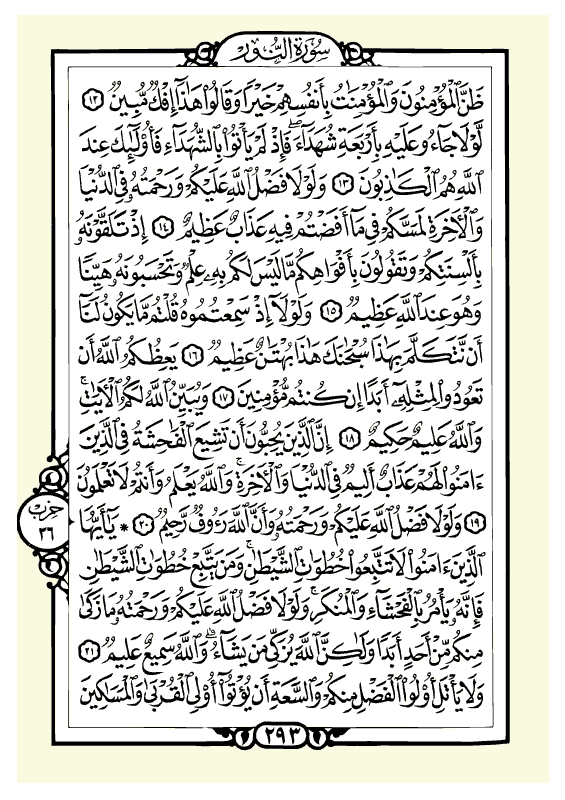 سُورَةُ النُّورِ
ظَنَّ ٱلْمُؤْمِنُونَ وَٱلْمُؤْمِنَٰتُ بِأَنفُسِهِمْ خَيْرًا وَقَالُوا۟ هَٰذَآ إِفْكٌ مُّبِينٌ ١٢
لَّوْلَا جَآءُو عَلَيْهِ بِأَرْبَعَةِ شُهَدَآءَ ۖ فَإِذْ لَمْ يَأْتُوا۟ بِٱلشُّهَدَآءِ فَأُو۟لَٰٓئِكَ عِندَ
ٱللَّهِ هُمُ ٱلْكَٰذِبُونَ ١٣ وَلَوْلَا فَضْلُ ٱللَّهِ عَلَيْكُمْ وَرَحْمَتُهُۥ فِى ٱلدُّنْيَا
وَٱلْـَٔاخِرَةِ لَمَسَّكُمْ فِى مَآ أَفَضْتُمْ فِيهِ عَذَابٌ عَظِيمٌ ١٤ إِذْ تَلَقَّوْنَهُۥ
بِأَلْسِنَتِكُمْ وَتَقُولُونَ بِأَفْوَاهِكُم مَّا لَيْسَ لَكُم بِهِۦ عِلْمٌ وَتَحْسَبُونَهُۥ هَيِّنًا
وَهُوَ عِندَ ٱللَّهِ عَظِيمٌ ١٥ وَلَوْلَآ إِذْ سَمِعْتُمُوهُ قُلْتُم مَّا يَكُونُ لَنَآ
أَن نَّتَكَلَّمَ بِهَٰذَا سُبْحَٰنَكَ هَٰذَا بُهْتَٰنٌ عَظِيمٌ ١٦ يَعِظُكُمُ ٱللَّهُ أَن
تَعُودُوا۟ لِمِثْلِهِۦٓ أَبَدًا إِن كُنتُم مُّؤْمِنِينَ ١٧ وَيُبَيِّنُ ٱللَّهُ لَكُمُ ٱلْـَٔايَٰتِ ۚ
وَٱللَّهُ عَلِيمٌ حَكِيمٌ ١٨ إِنَّ ٱلَّذِينَ يُحِبُّونَ أَن تَشِيعَ ٱلْفَٰحِشَةُ فِى ٱلَّذِينَ
ءَامَنُوا۟ لَهُمْ عَذَابٌ أَلِيمٌ فِى ٱلدُّنْيَا وَٱلْـَٔاخِرَةِ ۚ وَٱللَّهُ يَعْلَمُ وَأَنتُمْ لَا تَعْلَمُونَ
١٩ وَلَوْلَا فَضْلُ ٱللَّهِ عَلَيْكُمْ وَرَحْمَتُهُۥ وَأَنَّ ٱللَّهَ رَءُوفٌ رَّحِيمٌ ٢٠ * يَٰٓأَيُّهَا
حزب
٣٦
ٱلَّذِينَ ءَامَنُوا۟ لَا تَتَّبِعُوا۟ خُطُوَٰتِ ٱلشَّيْطَٰنِ ۚ وَمَن يَتَّبِعْ خُطُوَٰتِ ٱلشَّيْطَٰنِ
فَإِنَّهُۥ يَأْمُرُ بِٱلْفَحْشَآءِ وَٱلْمُنكَرِ ۚ وَلَوْلَا فَضْلُ ٱللَّهِ عَلَيْكُمْ وَرَحْمَتُهُۥ مَا زَكَىٰ
مِنكُم مِّنْ أَحَدٍ أَبَدًا وَلَٰكِنَّ ٱللَّهَ يُزَكِّى مَن يَشَآءُ ۗ وَٱللَّهُ سَمِيعٌ عَلِيمٌ ٢١
وَلَا يَأْتَلِ أُو۟لُوا۟ ٱلْفَضْلِ مِنكُمْ وَٱلسَّعَةِ أَن يُؤْتُوٓا۟ أُو۟لِى ٱلْقُرْبَىٰ وَٱلْمَسَٰكِينَ
٢٩٣